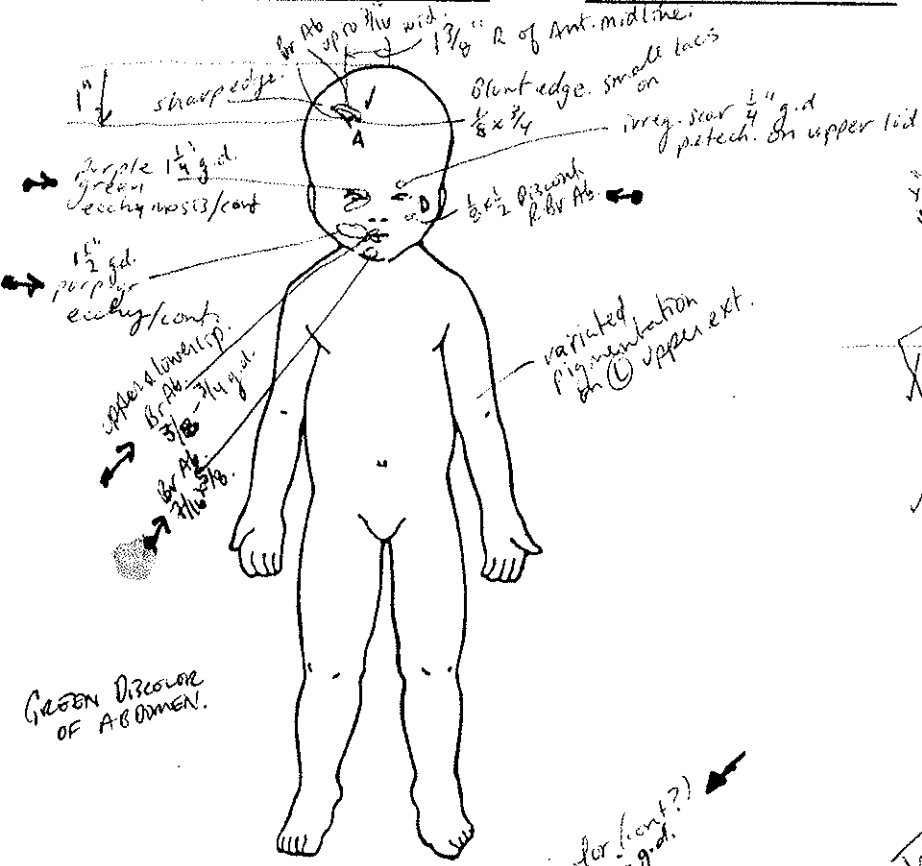 Br Ab up to 3/16 wid.
1 3/8" R of Ant. midline.
1"
sharp edge.
Blunt edge. small lacs
on
1/8 x 3/4
A
irreg. scar 1/4" g.d
petech. on upper lid
Purple 1 1/4" g.d.
green
ecchymosis/cont
D
1/8 x 1/2 Discont.
R Br Ab.
1 1/2" g.d.
purp gr
ecchy/cont
upper & lower lip.
Br Ab.
3/8 - 3/4 g.d.
Br Ab.
7/16 x 5/8.
variated
pigmentation
on L upper ext.
GREEN DISCOLOR
OF ABDOMEN.
for (cont?)
g.d.